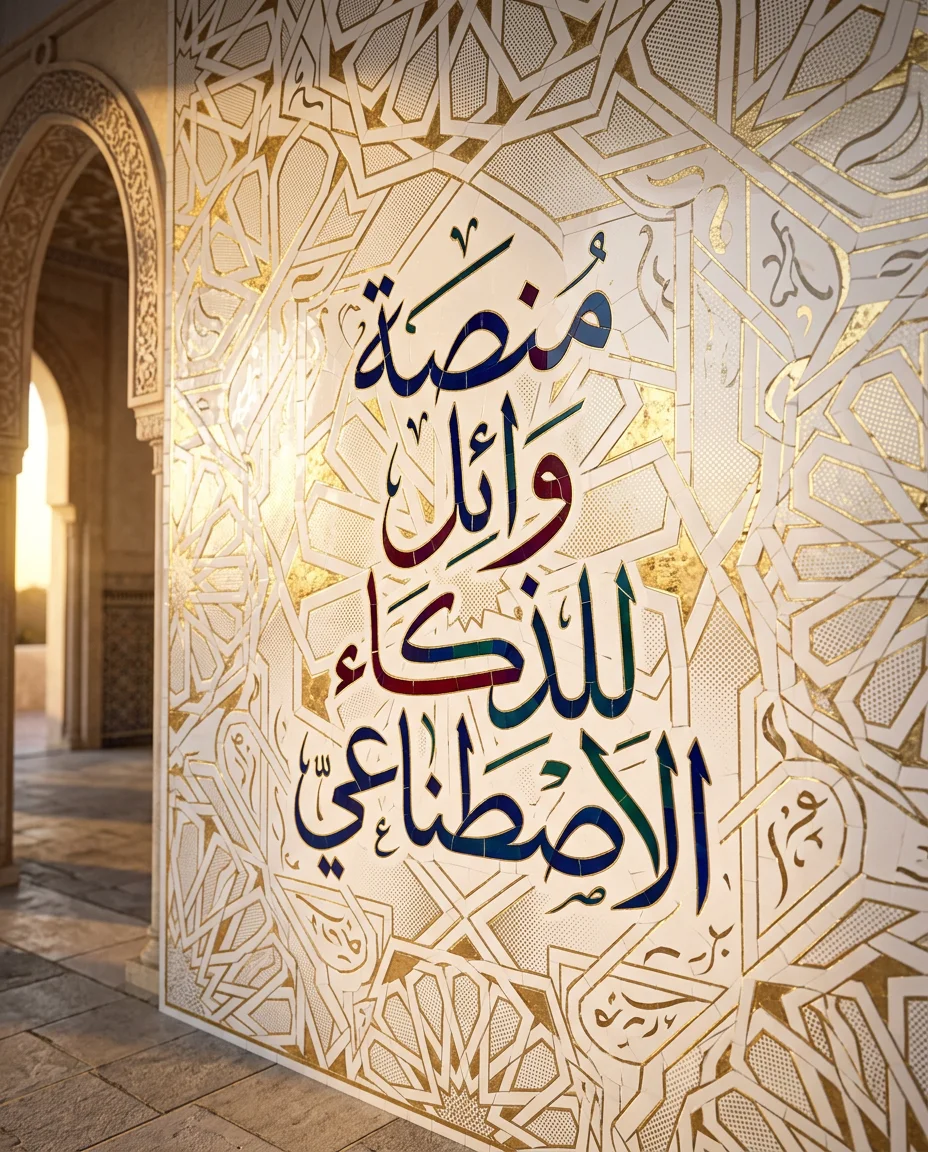 مُنصة
وَائِل
للذكاء
الاصطناعيّ